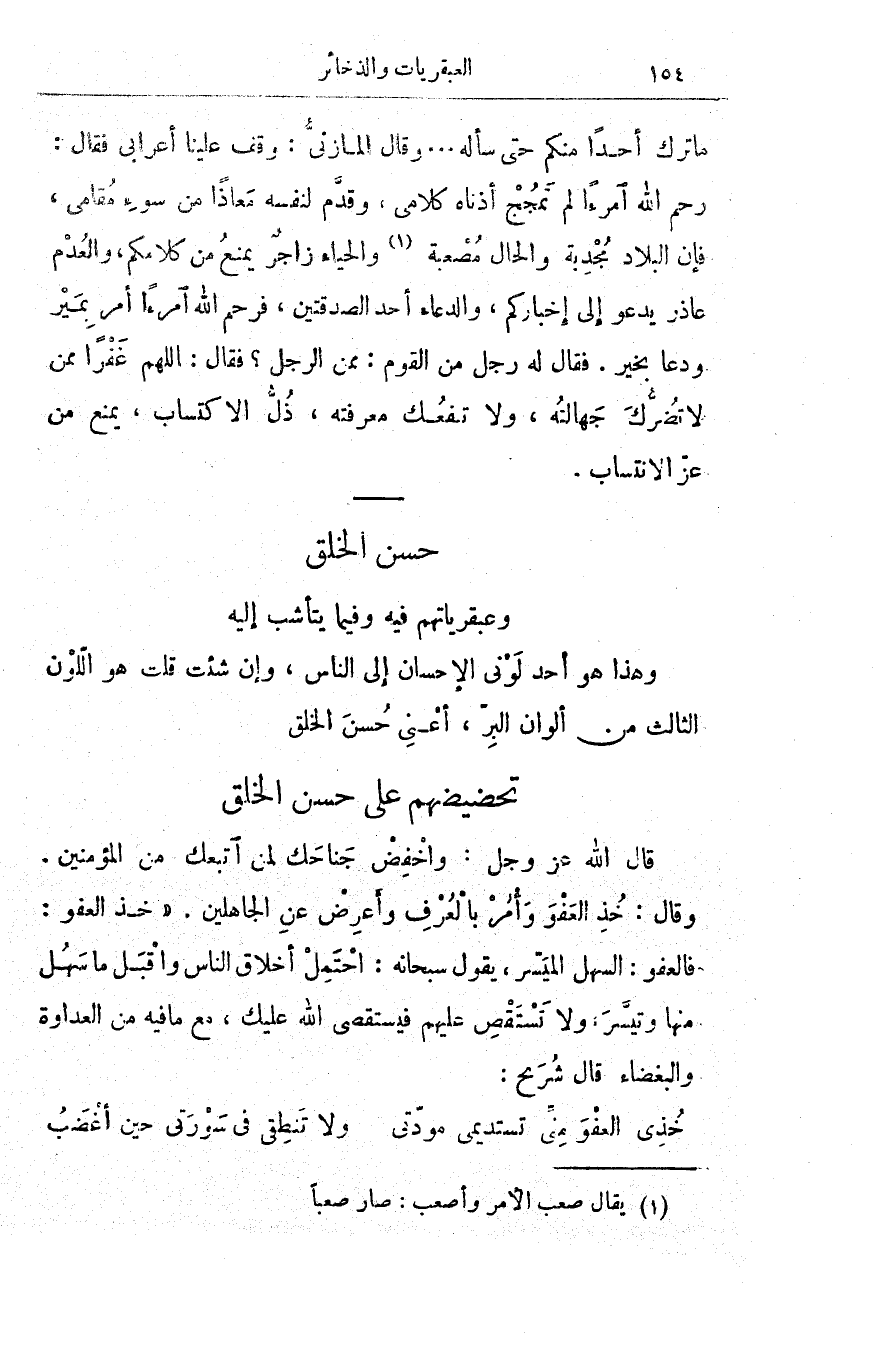 ١٥٤ العبقريات والذخائر
ماترك أحدًا منكم حتى سأله... وقال المازنىُّ : وقف علينا أعرابى فقال :
رحم الله ٱمرءًا لم تَمْجُجْ أذناه كلامى ، وقدَّم لنفسه مَعاذًا من سوء مُقامى ،
فإن البلاد مُجْدِبة والحال مُصْعبة (١) والحياء زاجرٌ يمنعُ من كلامكم، والعُدْم
عاذر يدعو إلى إخباركم ، والدعاء أحد الصدقتين ، فرحم الله ٱمرءًا أمر بِمَيْر
ودعا بخير . فقال له رجل من القوم : ممن الرجل ؟ فقال : اللهم غَفْرًا ممن
لاتضُرُّكَ جَهالتُه ، ولا تنفعُك معرفته ، ذُلُّ الاكتساب ، يمنع من
عزّ الانتساب .
حسن الخلق
وعبقرياتهم فيه وفيما يتأشب إليه
وهذا هو أحد لَوْنى الإحسان إلى الناس ، وإن شئت قلت هو الّلوْن
الثالث من ألوان البِرّ ، أعْنِي حُسنَ الخلق
تحضيضهم على حسن الخلق
قال الله عز وجل : واخْفِضْ جَناحَك لمن ٱتبعك من المؤمنين .
وقال : خُذِ العَفْوَ وَأْمُرْ بالْعُرْفِ وأَعرِضْ عنِ الجاهلين . « خذ العفو :
فالعفو : السهل الميَسّر ، يقول سبحانه : احْتَمِلْ أخلاق الناس واقْبَل ماسَهُل
منها وتيسَّرَ، ولا تَسْتَقْصِ عليهم فيستقصى الله عليك ، مع مافيه من العداوة
والبغضاء قال شُرَيح :
خُذِى العفْوَ مِنِّى تستديمى مودّتى ولا تَنطِقى فى سَوْرَتى حين أغْضَبُ
(١) يقال صعب الأمر وأصعب : صار صعباً